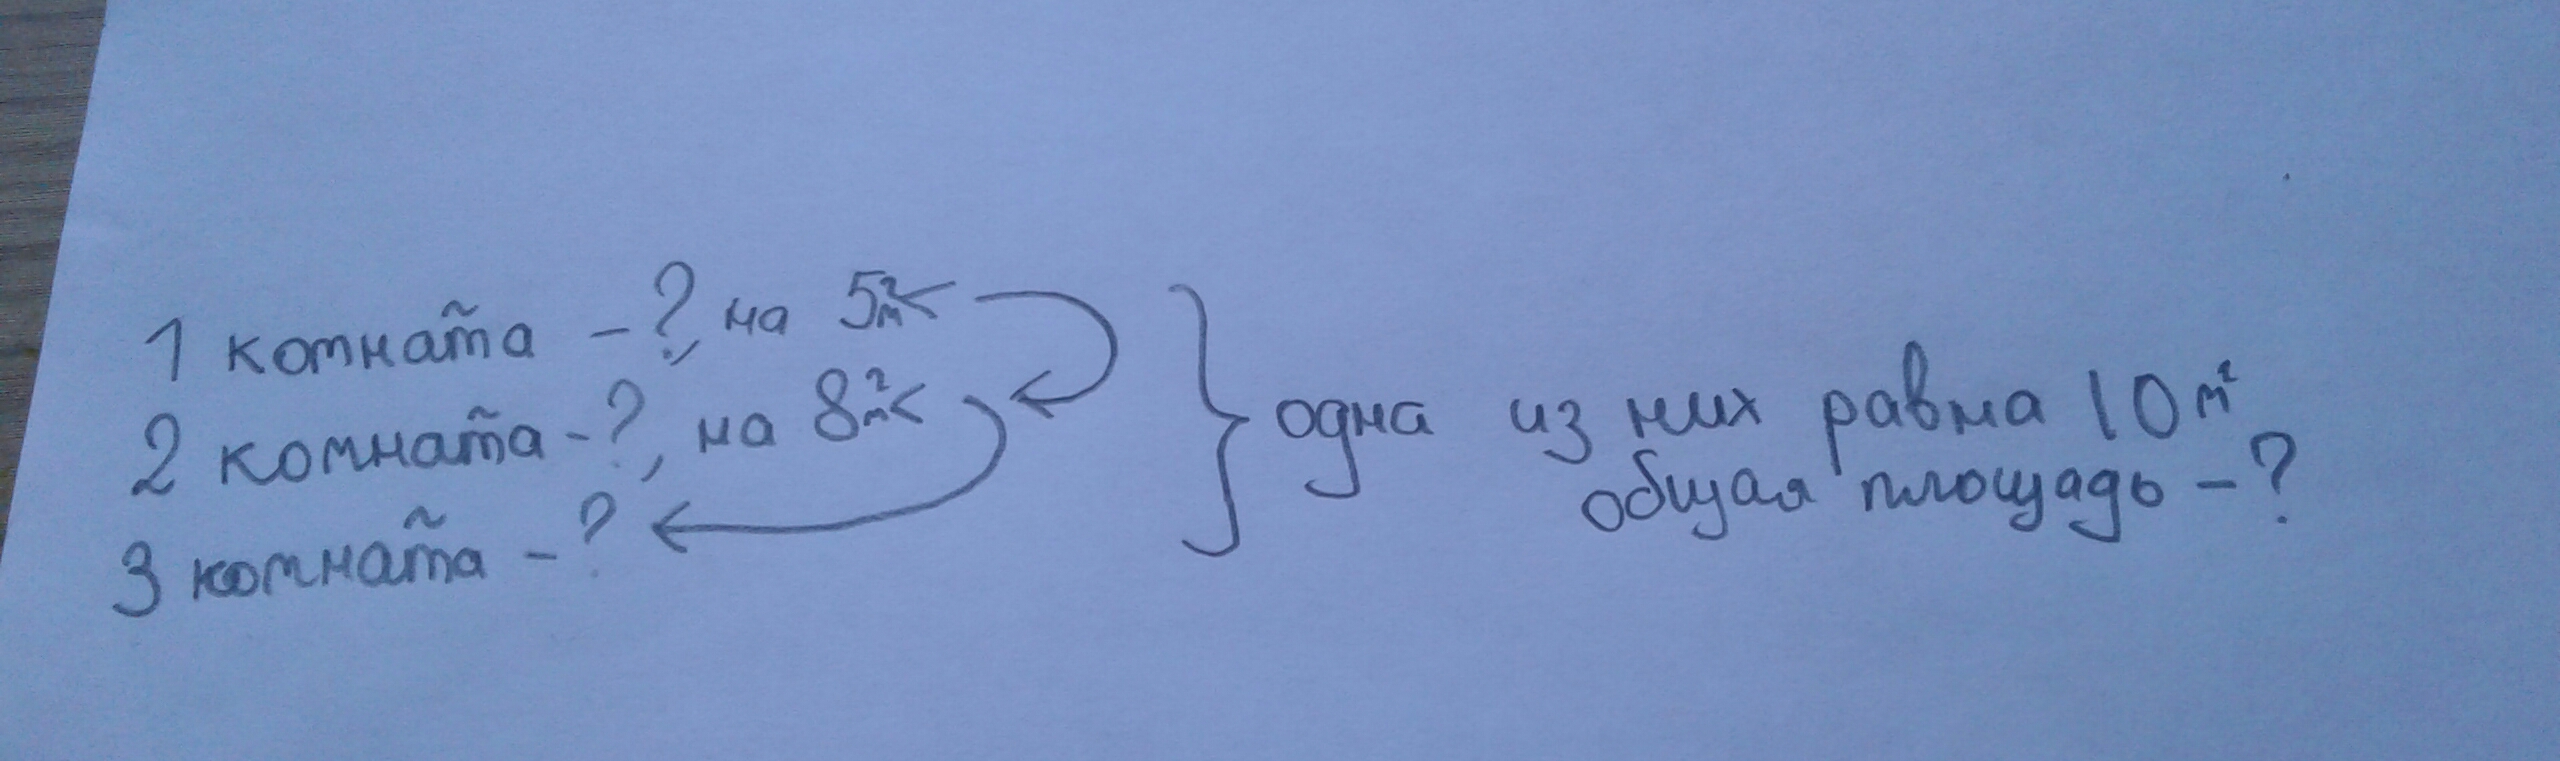 1 комната - ?, на 5 м² <
2 комната - ?, на 8 м² <
3 комната - ?
} одна из них равна 10 м²
общая площадь - ?